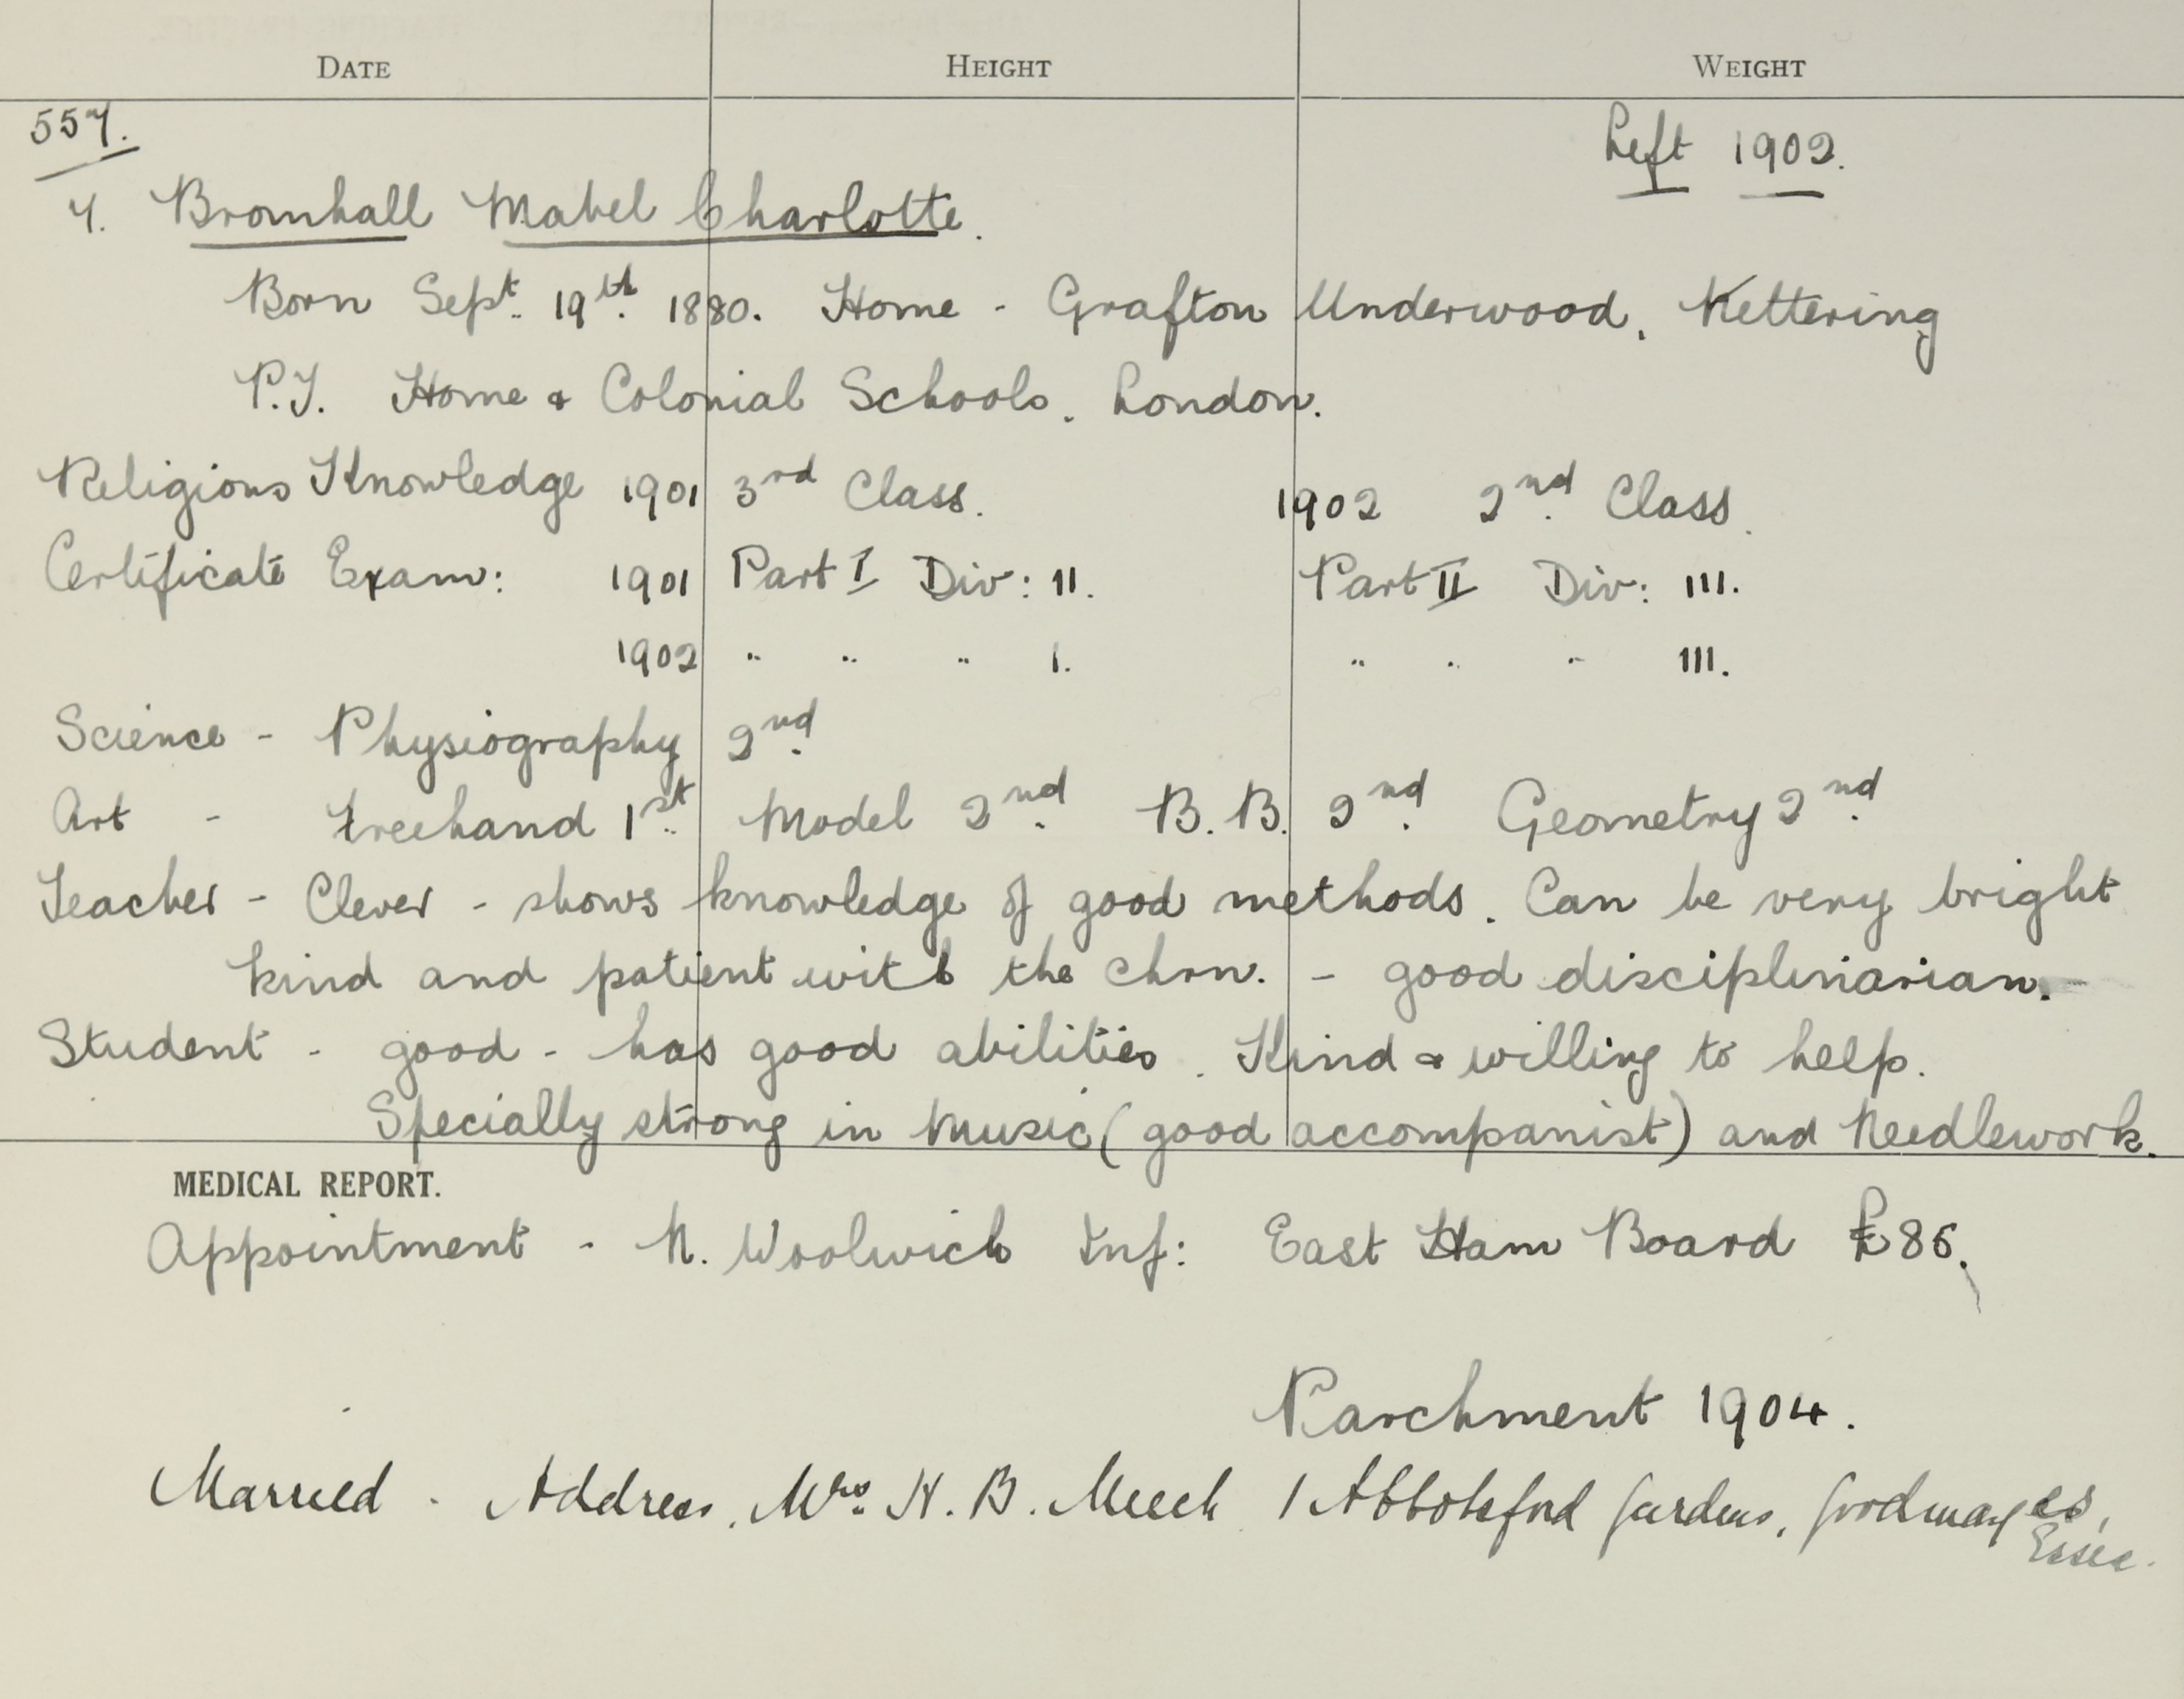 DATE HEIGHT WEIGHT
557. Left 1902.
7. Bromhall Mabel Charlotte.
Born Sept. 19th. 1880. Home - Grafton Underwood, Kettering
P.T. Home & Colonial Schools. London.
Religious Knowledge 1901 3rd Class. 1902 2nd Class.
Certificate Exam: 1901 Part I Div: II. Part II Div: III.
1902 " " " I. " " " III.
Science - Physiography 2nd
Art - Freehand 1st Model 2nd B.B. 2nd Geometry 2nd
Teacher - Clever - shows knowledge of good methods. Can be very bright
kind and patient with the chrn. - good disciplinarian.
Student - good - has good abilities. Kind & willing to help.
Specially strong in Music (good accompanist) and Needlework.
MEDICAL REPORT.
Appointment - N. Woolwich Inf: East Ham Board £85.
Parchment 1904.
Married - Address. Mrs. H. B. Meech 1 Abbotsford Gardens, Goodmayes,
Essex.